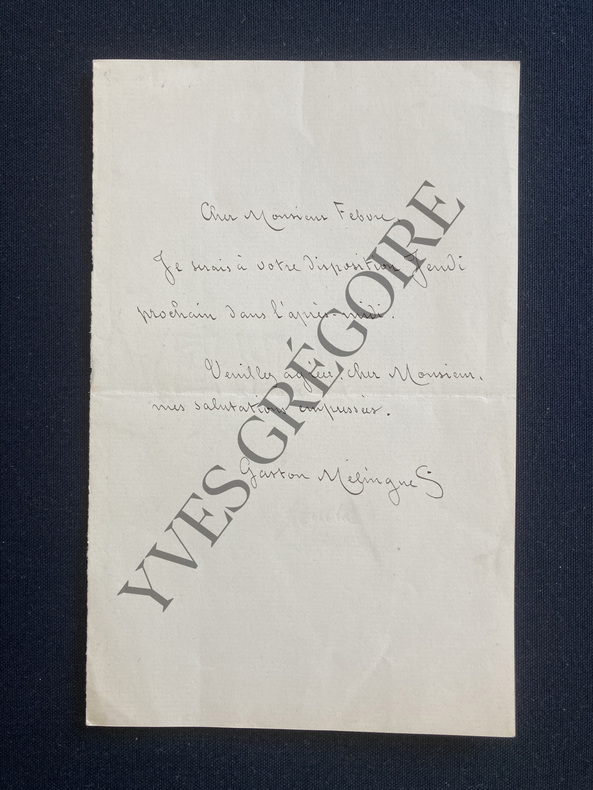 Cher Monsieur Febvre,
Je serais à votre disposition Jeudi
prochain dans l'après-midi.
Veuillez agréer, cher Monsieur,
mes salutations empressées.
Gaston Mélingue
YVES GRÉGOIRE